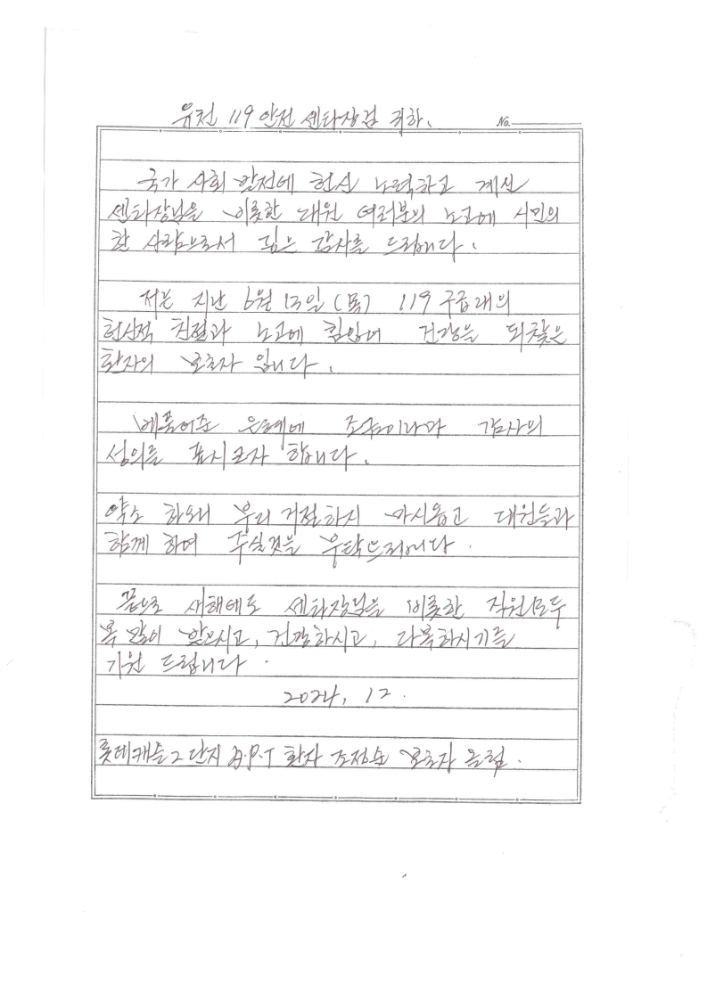 유천 119 안전 센타장님 귀하.
No.
국가 사회 안전에 헌신 노력하고 계신
센타장님을 비롯한 대원 여러분의 노고에 시민의
한 사람으로서 깊은 감사를 드립니다.
저는 지난 6월 13일 (목) 119 구급대의
헌신적 친절과 노고에 힘입어 건강을 되찾은
환자의 보호자 입니다.
베풀어준 은혜에 조금이나마 감사의
성의를 표시코자 합니다.
약소 하오니 부디 거절하지 마시옵고 대원들과
함께 하여 주실것을 부탁드리니다.
끝으로 새해에도 센타장님을 비롯한 직원모두
복 많이 받으시고, 건강하시고, 다복하시기를
기원 드립니다.
2024, 12.
롯데캐슬2단지 A.P.T 환자 조정순 보호자 올림.